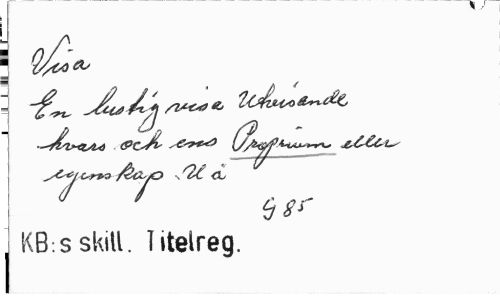 Visa
En lustig visa Utvisande
hvars och ens Proprium eller
egenskap. U å
G 85
KB:s skill. Titelreg.